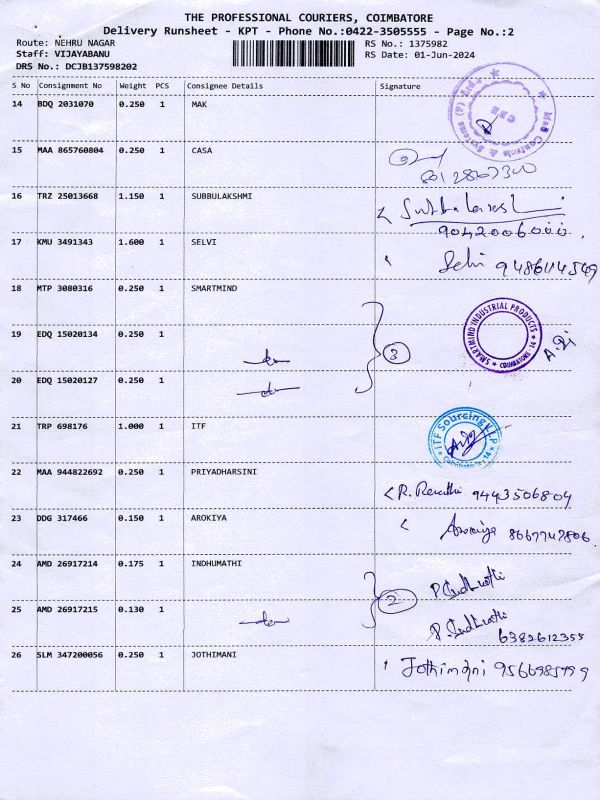 THE PROFESSIONAL COURIERS, COIMBATORE
Delivery Runsheet - KPT - Phone No.:0422-3505555 - Page No.:2
Route: NEHRU NAGAR
Staff: VIJAYABANU
DRS No.: DCJB137598202
RS No.: 1375982
RS Date: 01-Jun-2024
S No Consignment No Weight PCS Consignee Details Signature
14 BDQ 2031070 0.250 1 MAK
15 MAA 865760804 0.250 1 CASA
16 TRZ 25013668 1.150 1 SUBBULAKSHMI
9042006000
17 KMU 3491343 1.600 1 SELVI Selvi 9486114549
18 MTP 3080316 0.250 1 SMARTMIND
SMARTMIND INDUSTRIAL PRODUCTS COIMBATORE
19 EDQ 15020134 0.250 1
3
20 EDQ 15020127 0.250 1
21 TRP 698176 1.000 1 ITF
ITF Sourcing LLP Coimbatore-14
22 MAA 944822692 0.250 1 PRIYADHARSINI R. Revathi 9443506804
23 DDG 317466 0.150 1 AROKIYA 8667747806
24 AMD 26917214 0.175 1 INDHUMATHI P. Indhumathi
2
25 AMD 26917215 0.130 1 P. Indhumathi
6382612355
26 SLM 347200056 0.250 1 JOTHIMANI Jothimani